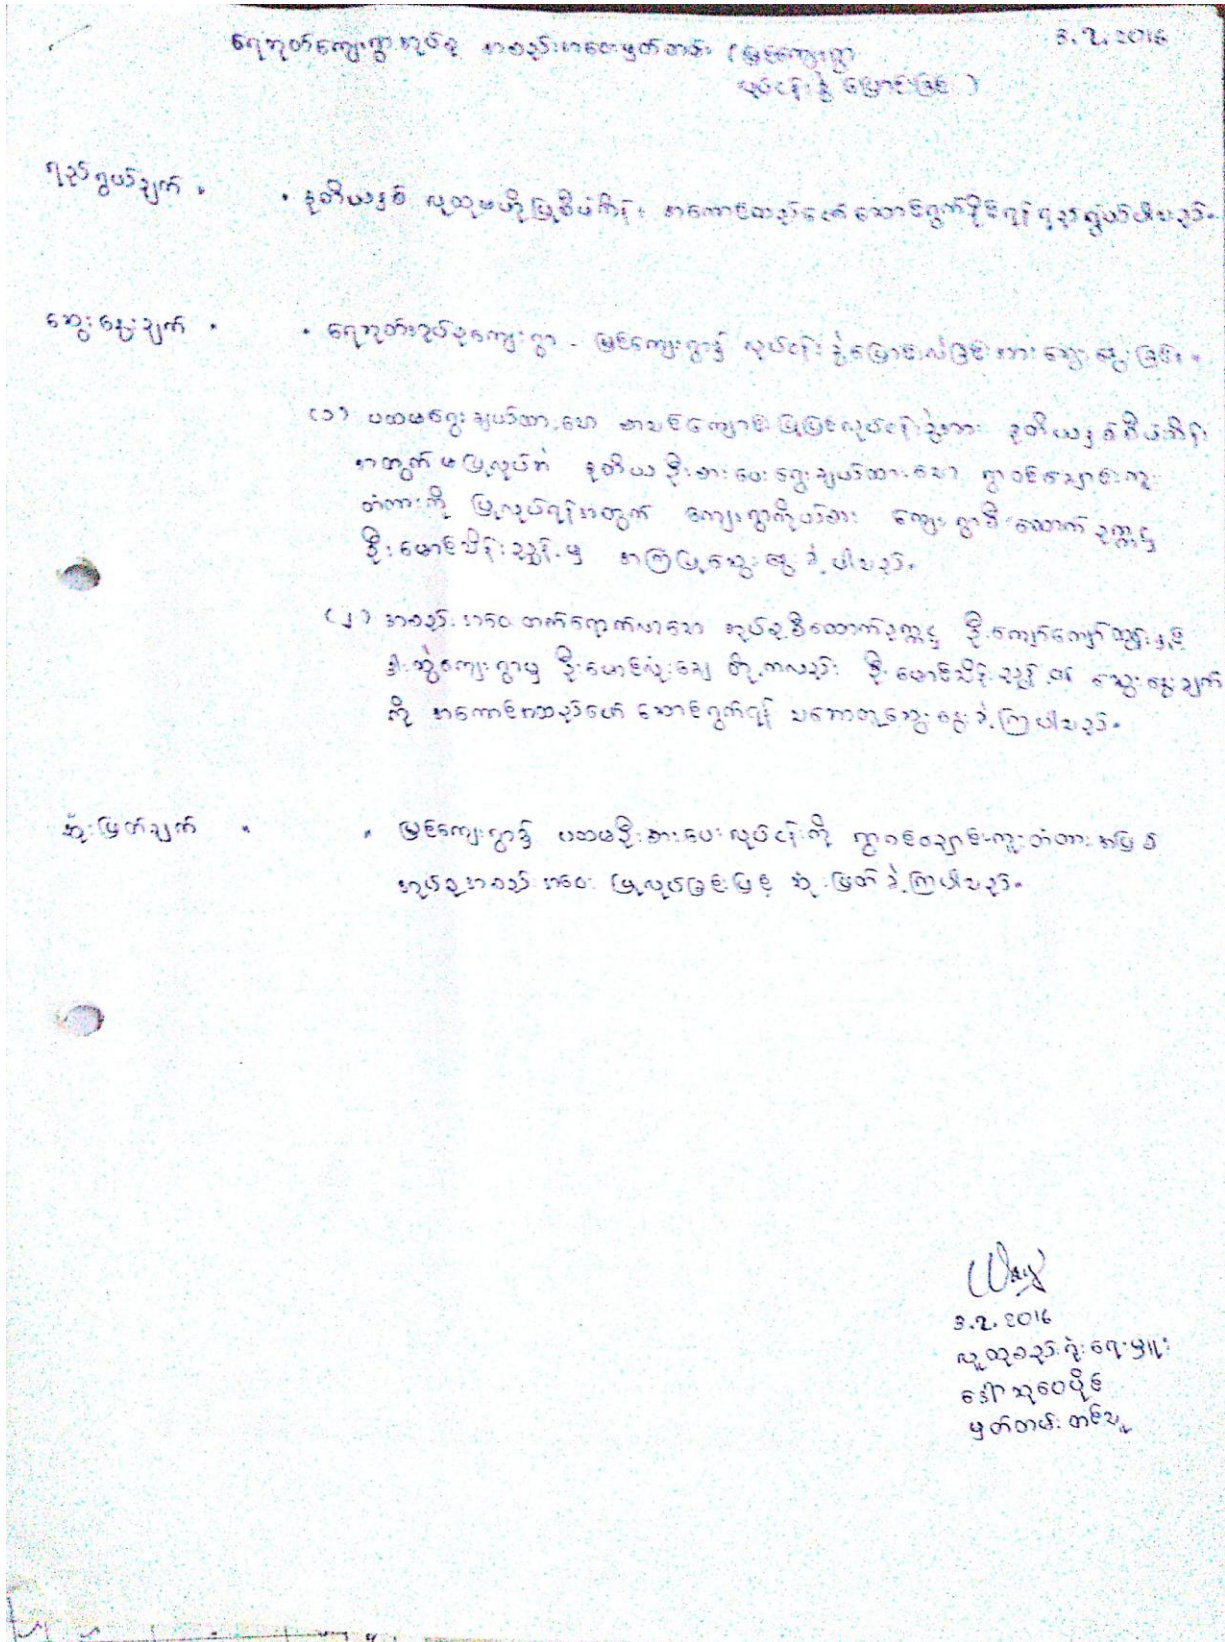 ရေဘုတ်ကျေးရွာအုပ်စု အစည်းအဝေးမှတ်တမ်း (မြင်ကျေးရွာ
3.2.2016
လုပ်ငန်းခွဲ ပြောင်းခြင်း)
ရည်ရွယ်ချက် " " ဒုတိယနှစ် လူထုဗဟိုပြုစီမံကိန်း အကောင်အထည်ဖော် ဆောင်ရွက်နိုင်ရန် ရည်ရွယ်ပါသည်။
ဆွေးနွေးချက် " " ရေဘုတ်အုပ်စုကျေးရွာ - မြင်ကျေးရွာ၌ လုပ်ငန်းခွဲပြောင်းလဲခြင်းအား ဆွေးနွေးခြင်း။
(၁) ပထမရွေးချယ်ထားသော စာသင်ကျောင်းပြုပြင်လုပ်ငန်းခွဲအား ဒုတိယနှစ်စီမံကိန်း
အတွက် မပြုလုပ်ဘဲ ဒုတိယဦးစားပေးရွေးချယ်ထားသော ရွာဝင်ချောင်းကူး
တံတားကို ပြုလုပ်ရန်အတွက် ကျေးရွာကိုယ်စား ကျေးရွာစီ/ထောက်ဥက္ကဋ္ဌ
ဦးမောင်သိန်းညွန့်မှ အကြံပြုဆွေးနွေးခဲ့ပါသည်။
(၂) အစည်းအဝေးတက်ရောက်လာသော အုပ်စုစီ/ထောက်ဥက္ကဋ္ဌ ဦးကျော်ကျော်ထွန်းနှင့်
ဦးမောင်လုံးချေ တို့ကလည်း ဦးမောင်သိန်းညွန့်၏ ဆွေးနွေးချက်
ကို အကောင်အထည်ဖော် ဆောင်ရွက်ရန် သဘောတူဆွေးနွေးခဲ့ကြပါသည်။
ဆုံးဖြတ်ချက် " " မြင်ကျေးရွာ၌ ပထမဦးစားပေးလုပ်ငန်းကို ရွာဝင်ချောင်းကူးတံတားအဖြစ်
အုပ်စုအစည်းအဝေး ပြုလုပ်ခြင်းဖြင့် ဆုံးဖြတ်ခဲ့ကြပါသည်။
3.2.2016
လူထုစည်းရုံးရေးမှူး
ဒေါ်သုဝေပိုင်
မှတ်တမ်းတင်သူ